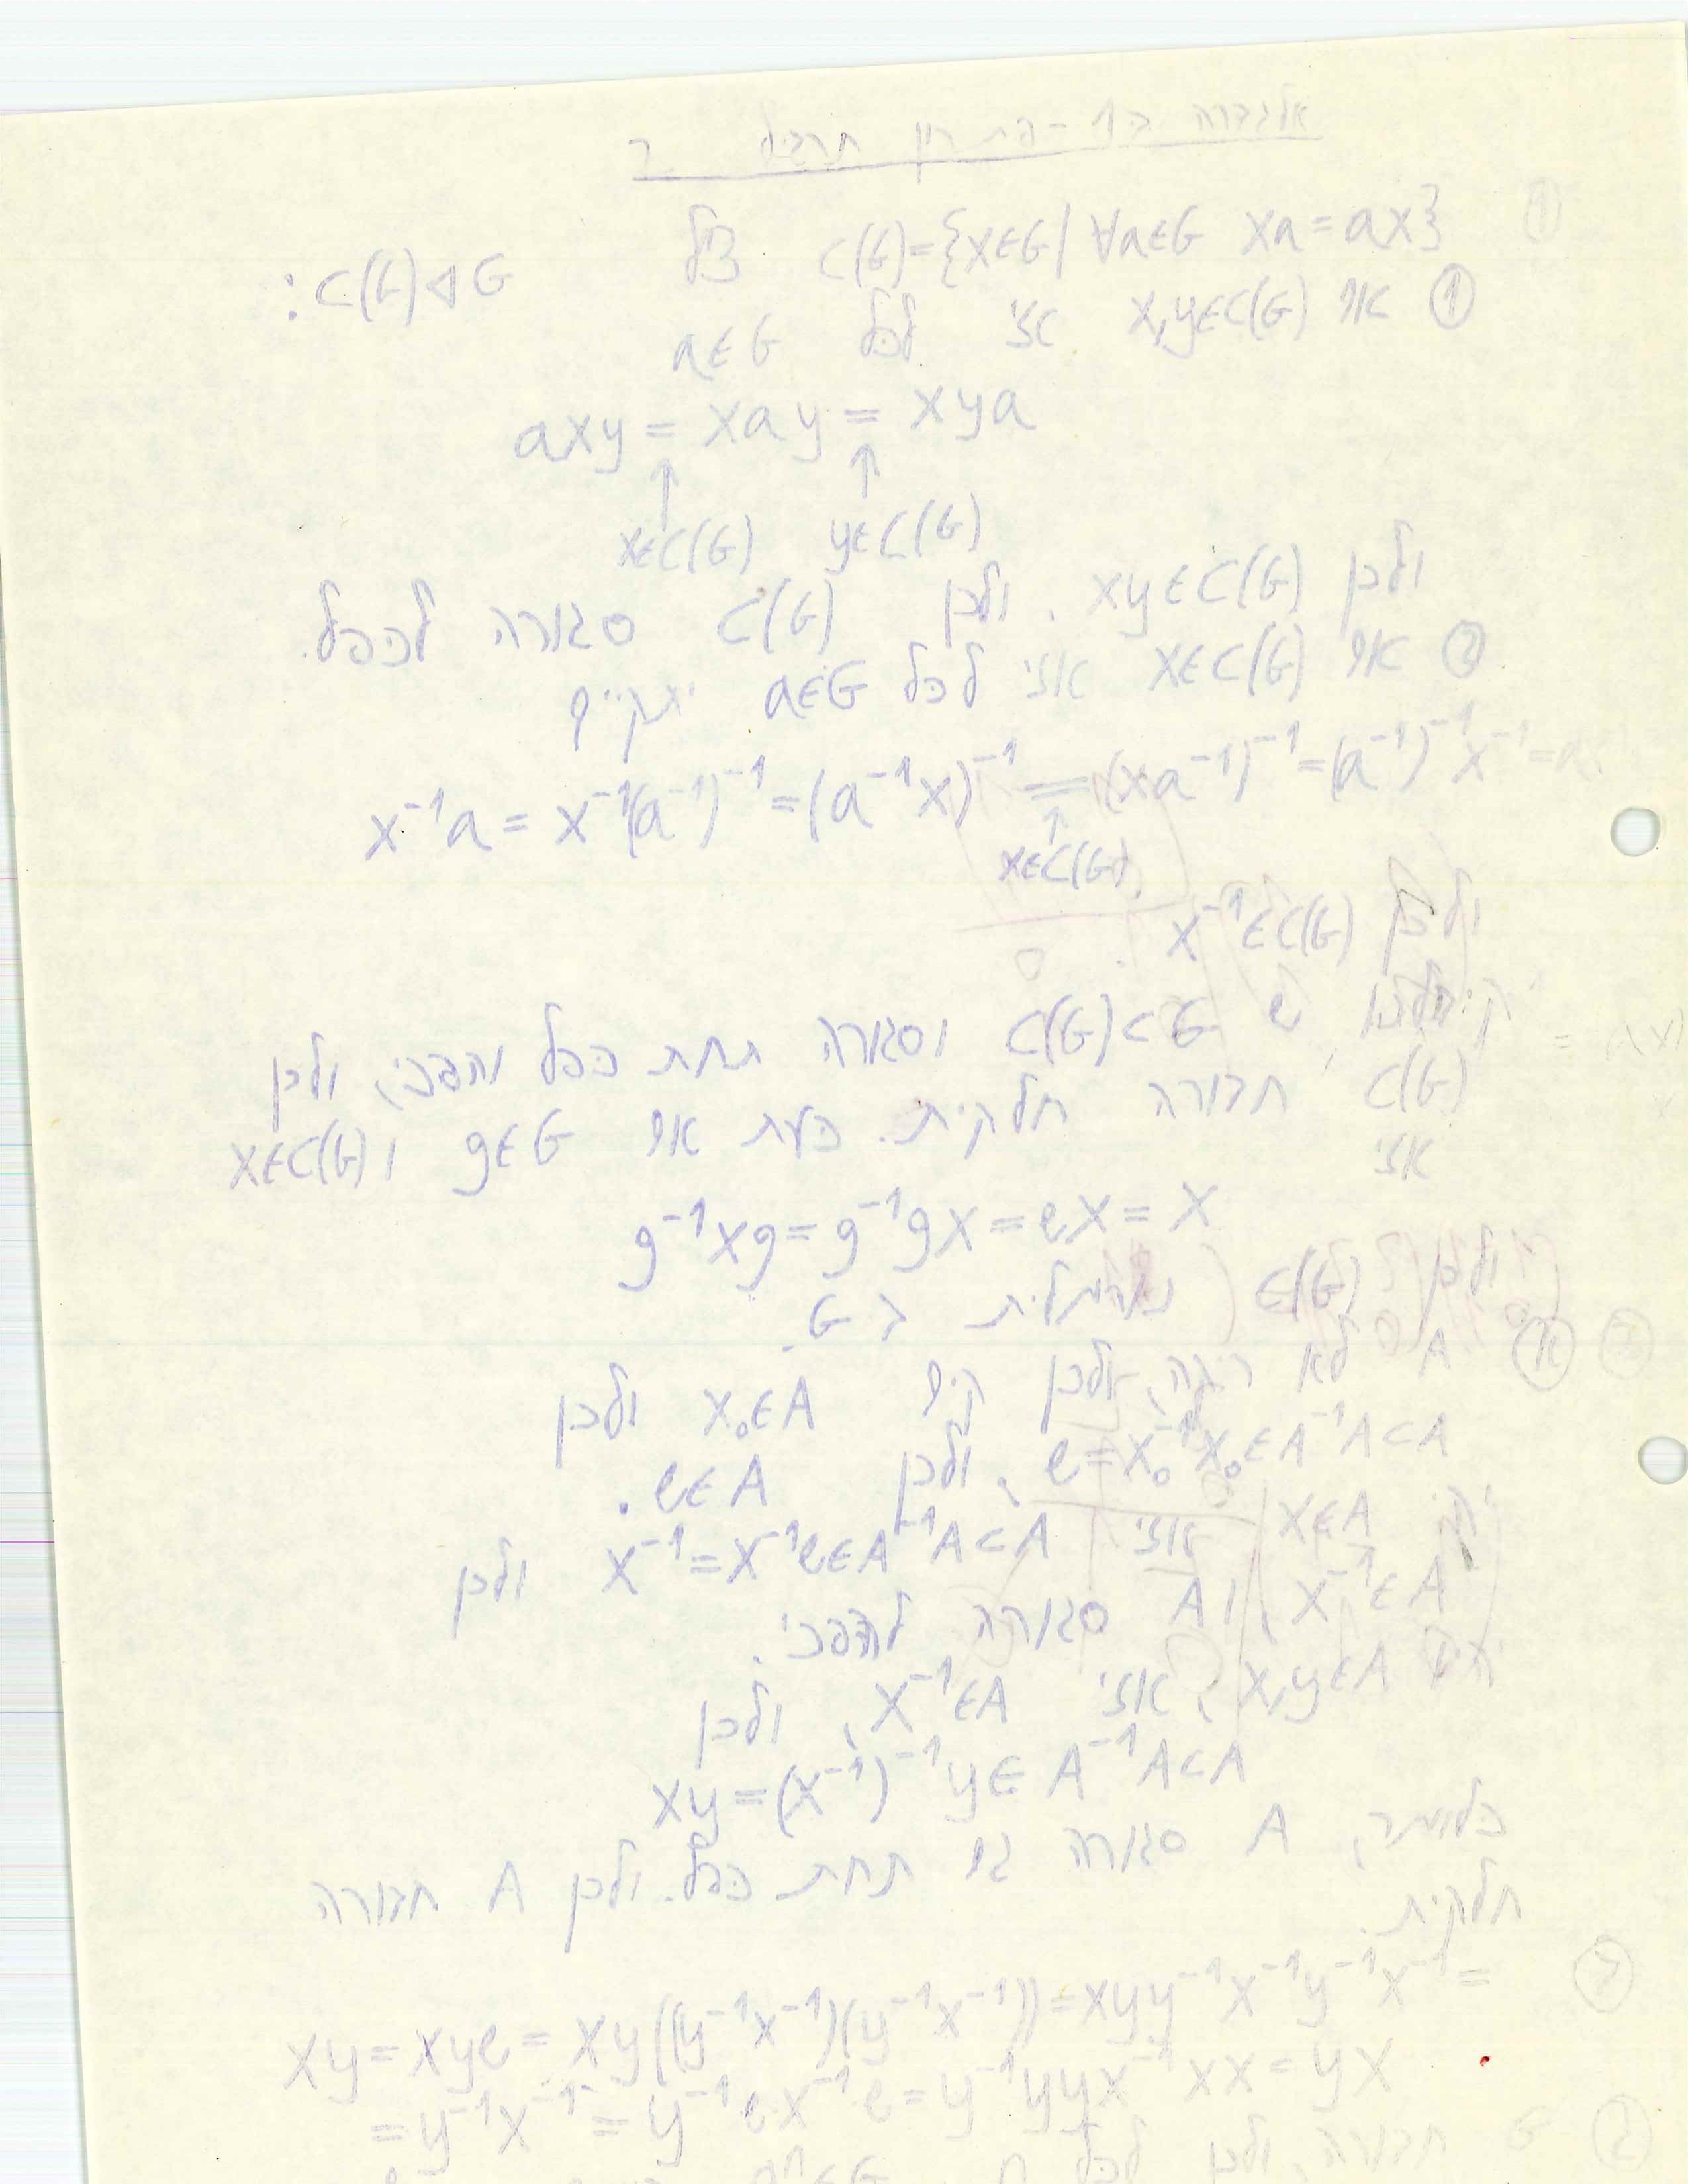 אלגברה ב1 - פתרון תרגיל 2
① C(G)={x∈G | ∀a∈G xa=ax} צ"ל C(G)◁G:
① אם x,y∈C(G) אזי לכל a∈G
axy = xay = xya
↑ ↑
x∈C(G) y∈C(G)
ולכן xy∈C(G). ולכן C(G) סגורה לכפל.
② אם x∈C(G) אזי לכל a∈G יתקיים
x⁻¹a = x⁻¹(a⁻¹)⁻¹ = (a⁻¹x)⁻¹ = (xa⁻¹)⁻¹ = (a⁻¹)⁻¹x⁻¹ = a
↑
x∈C(G)
ולכן x⁻¹∈C(G).
ש C(G)⊂G וסגורה תחת כפל והפכי, ולכן
C(G) חבורה חלקית. כעת אם g∈G ו x∈C(G)
אזי
g⁻¹xg = g⁻¹gx = ex = x
ולכן C(G) נורמלית ב G.
א A לא ריקה, ולכן קיים x₀∈A ולכן
e = x₀⁻¹x₀∈A⁻¹A⊂A, ולכן e∈A.
יהי x∈A אזי x⁻¹ = x⁻¹e∈A⁻¹A⊂A ולכן
x⁻¹∈A, ו A סגורה להפכי.
יהיו x,y∈A, אזי x⁻¹∈A, ולכן
xy = (x⁻¹)⁻¹y∈A⁻¹A⊂A
כלומר, A סגורה גם תחת כפל. ולכן A חבורה
חלקית.
xy = xye = xy((y⁻¹x⁻¹)(y⁻¹x⁻¹)) = xyy⁻¹x⁻¹y⁻¹x⁻¹ =
= y⁻¹x⁻¹ = y⁻¹ex⁻¹e = y⁻¹yyx⁻¹xx = yx
G חבורה, ולכן לכל